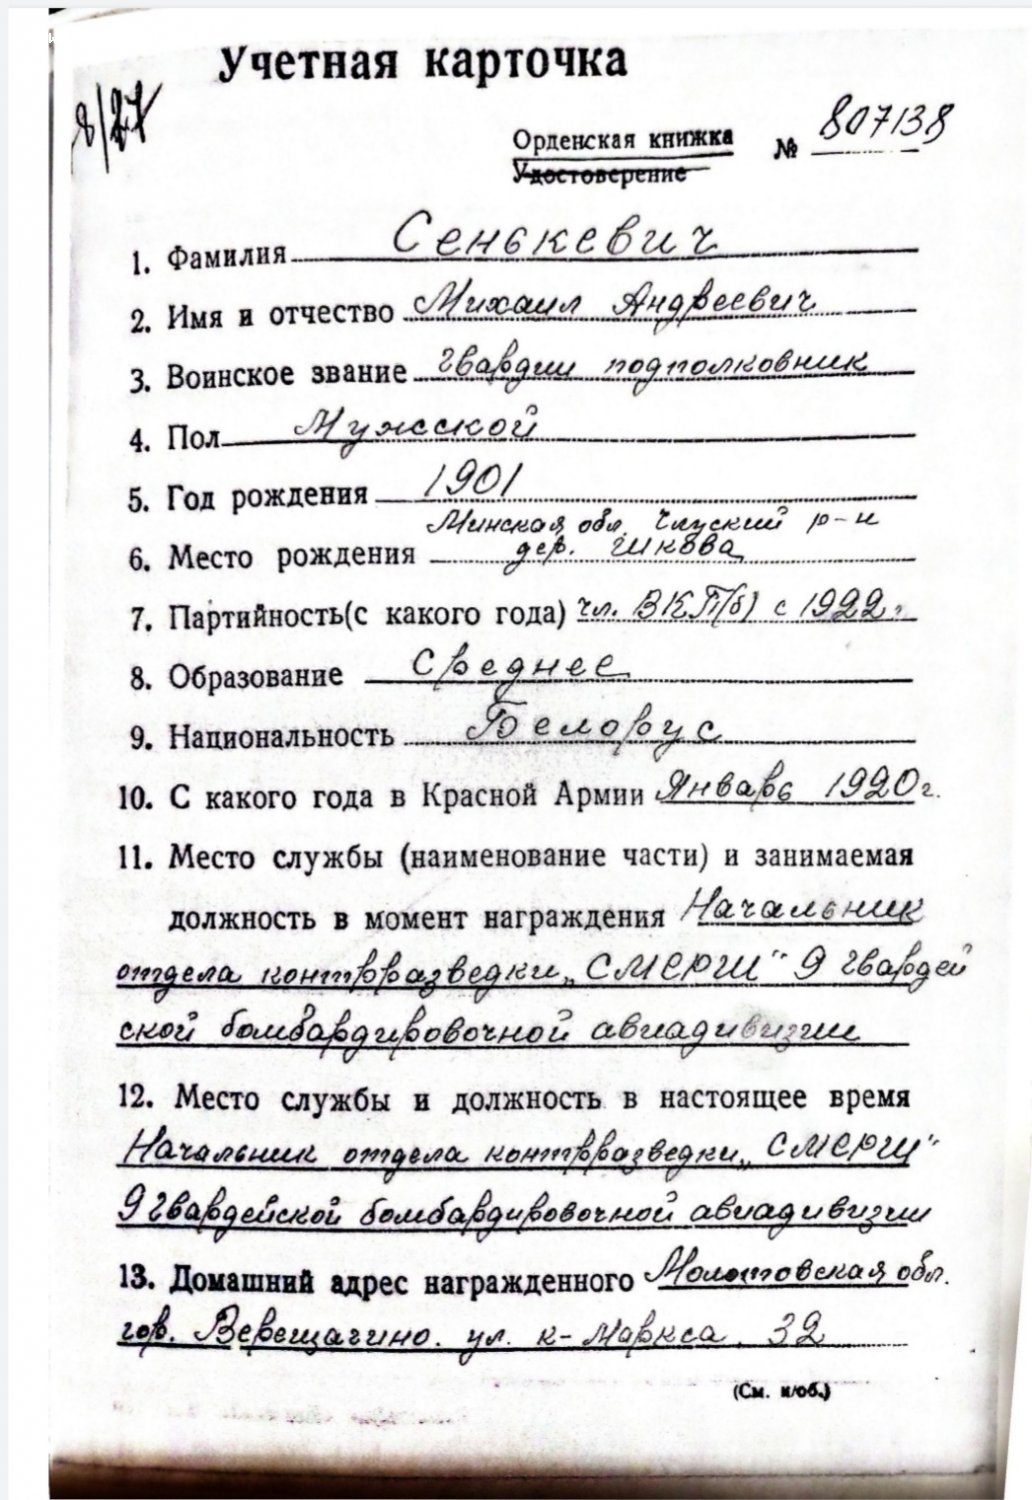 Учетная карточка
8/27
Орденская книжка № 807138
Удостоверение
1. Фамилия Сенькевич
2. Имя и отчество Михаил Андреевич
3. Воинское звание Гвардии подполковник
4. Пол Мужской
5. Год рождения 1901
Минская обл. р-н
6. Место рождения дер.
7. Партийность(с какого года) чл. ВКП(б) с 1922 г.
8. Образование Среднее
9. Национальность Белорус
10. С какого года в Красной Армии Январь 1920 г.
11. Место службы (наименование части) и занимаемая
должность в момент награждения Начальник
отдела контрразведки „СМЕРШ" 9 Гвардей
ской бомбардировочной авиадивизии
12. Место службы и должность в настоящее время
Начальник отдела контрразведки „СМЕРШ"
9 Гвардейской бомбардировочной авиадивизии
13. Домашний адрес награжденного Молотовская обл.
гор. Верещагино. ул. К-Маркса. 32
(См. н/об.)